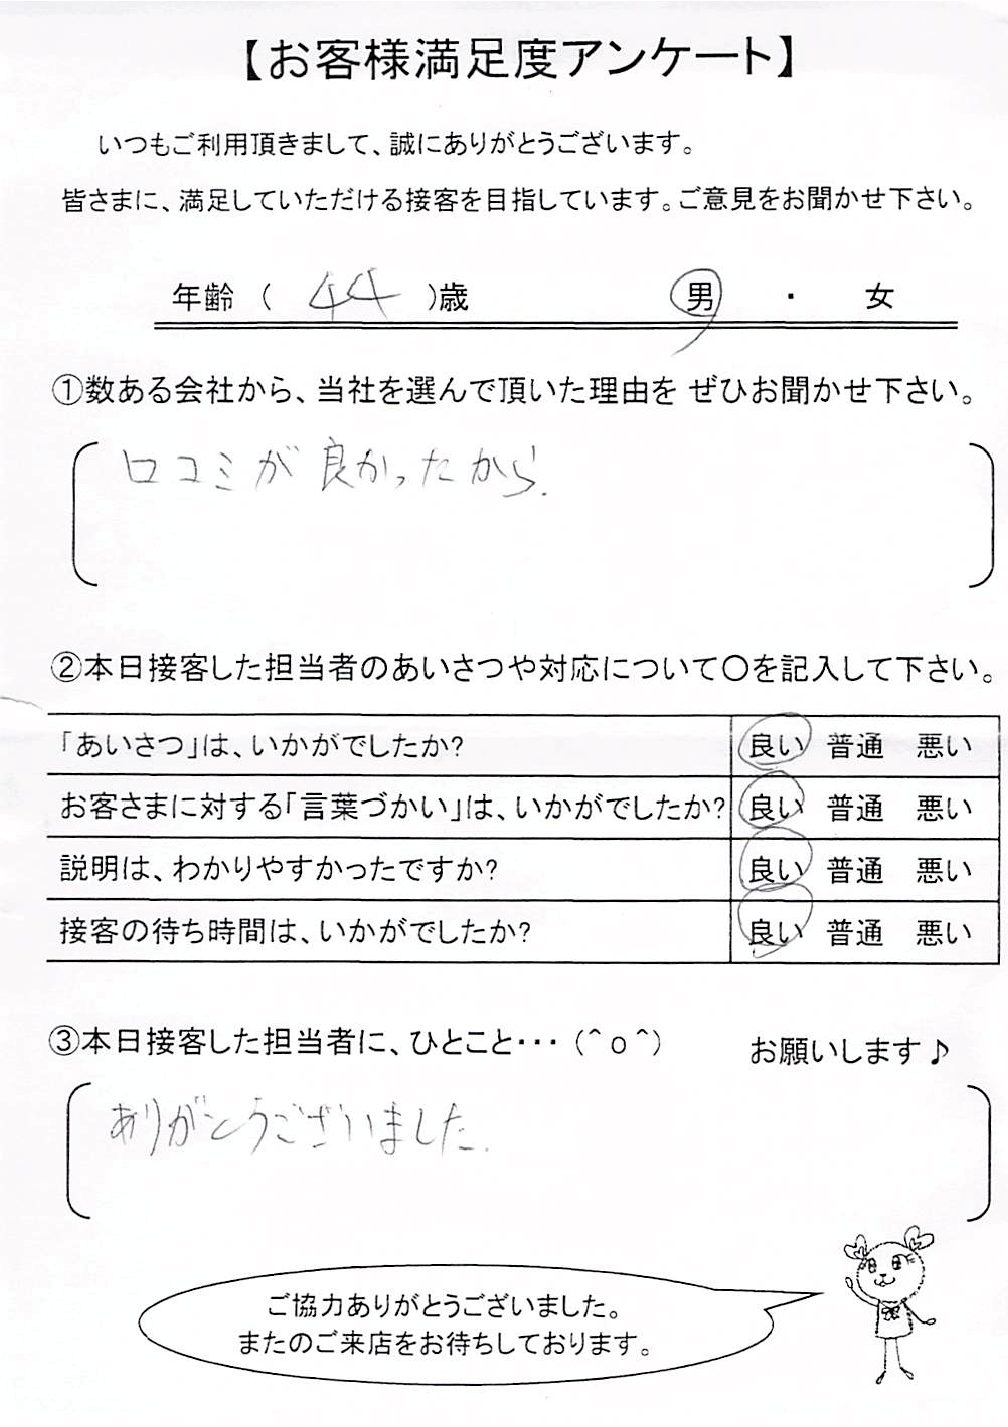 【お客様満足度アンケート】
いつもご利用頂きまして、誠にありがとうございます。
皆さまに、満足していただける接客を目指しています。ご意見をお聞かせ下さい。
年齢（ 44 ）歳 男 ・ 女
①数ある会社から、当社を選んで頂いた理由を ぜひお聞かせ下さい。
口コミが良かったから.
②本日接客した担当者のあいさつや対応について〇を記入して下さい。
「あいさつ」は、いかがでしたか? 良い 普通 悪い
お客さまに対する「言葉づかい」は、いかがでしたか? 良い 普通 悪い
説明は、わかりやすかったですか? 良い 普通 悪い
接客の待ち時間は、いかがでしたか? 良い 普通 悪い
③本日接客した担当者に、ひとこと・・・（＾ｏ＾） お願いします♪
ありがとうございました.
ご協力ありがとうございました。
またのご来店をお待ちしております。